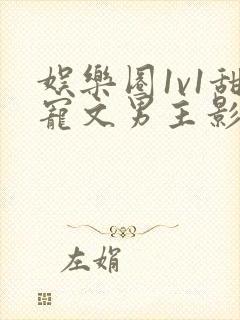 娛樂圈1v1甜
寵文男主影
左娟